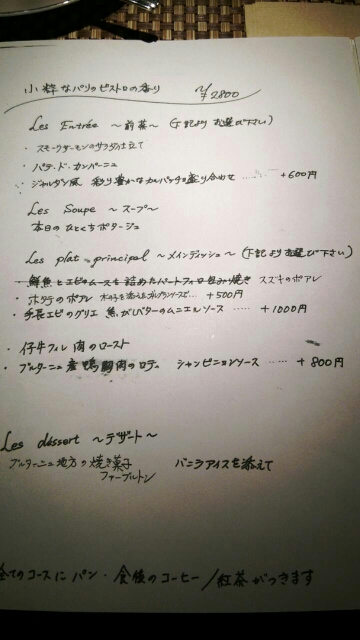 小粋なパリのビストロの香り ¥2800
Les Entrée ～前菜～ (下記よりお選び下さい)
・スモークサーモンのサラダ仕立て
・パテ・ド・カンパーニュ
・ジャルダン風 彩り豊かなカルパッチョ盛り合わせ …… +600円
Les Soupe ～スープ～
本日のひとくちポタージュ
Les plat principal ～メインディッシュ～ (下記よりお選び下さい)
・鮮魚とエビのムースを詰めたパートフィロ包み焼き スズキのポアレ
・ホタテのポアレ …… +500円
・手長エビのグリエ 焦がしバターのムニエルソース …… +1000円
・仔牛フィレ肉のロースト
・ブルターニュ産鴨胸肉のロティ シャンピニョンソース …… +800円
Les déssert ～デザート～
ブルターニュ地方の焼き菓子 バニラアイスを添えて
ファーブルトン
全てのコースにパン・食後のコーヒー/紅茶がつきます